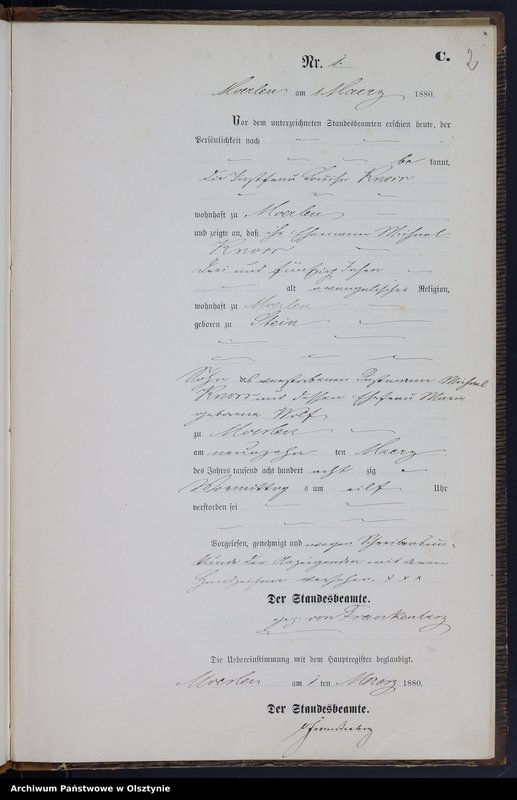 C.
2
Nr. 1.
Moerlen am 1 Maerz 1880.
Vor dem unterzeichneten Standesbeamten erschien heute, der
Persönlichkeit nach
be kannt,
die Instfrau Louise Knorr
wohnhaft zu Moerlen
und zeigte an, daß ihr Ehemann Michael
Knorr
drei und fünfzig Jahre
alt evangelischer Religion,
wohnhaft zu Moerlen
geboren zu Stein
Sohn des verstorbenen Instmann Michael
Knorr und dessen Ehefrau
geborene Wolf
zu Moerlen
am ten Maerz
des Jahres tausend acht hundert acht zig
Vormittag s um elf Uhr
verstorben sei
Vorgelesen, genehmigt und wegen Schreibensun-
kunde der Anzeigenden mit deren
Handzeichen versehen. x x x
Der Standesbeamte.
gez. von Frankenberg
Die Uebereinstimmung mit dem Hauptregister beglaubigt.
Moerlen am 1 ten Maerz 1880.
Der Standesbeamte.
vFrankenberg
Archiwum Państwowe w Olsztynie